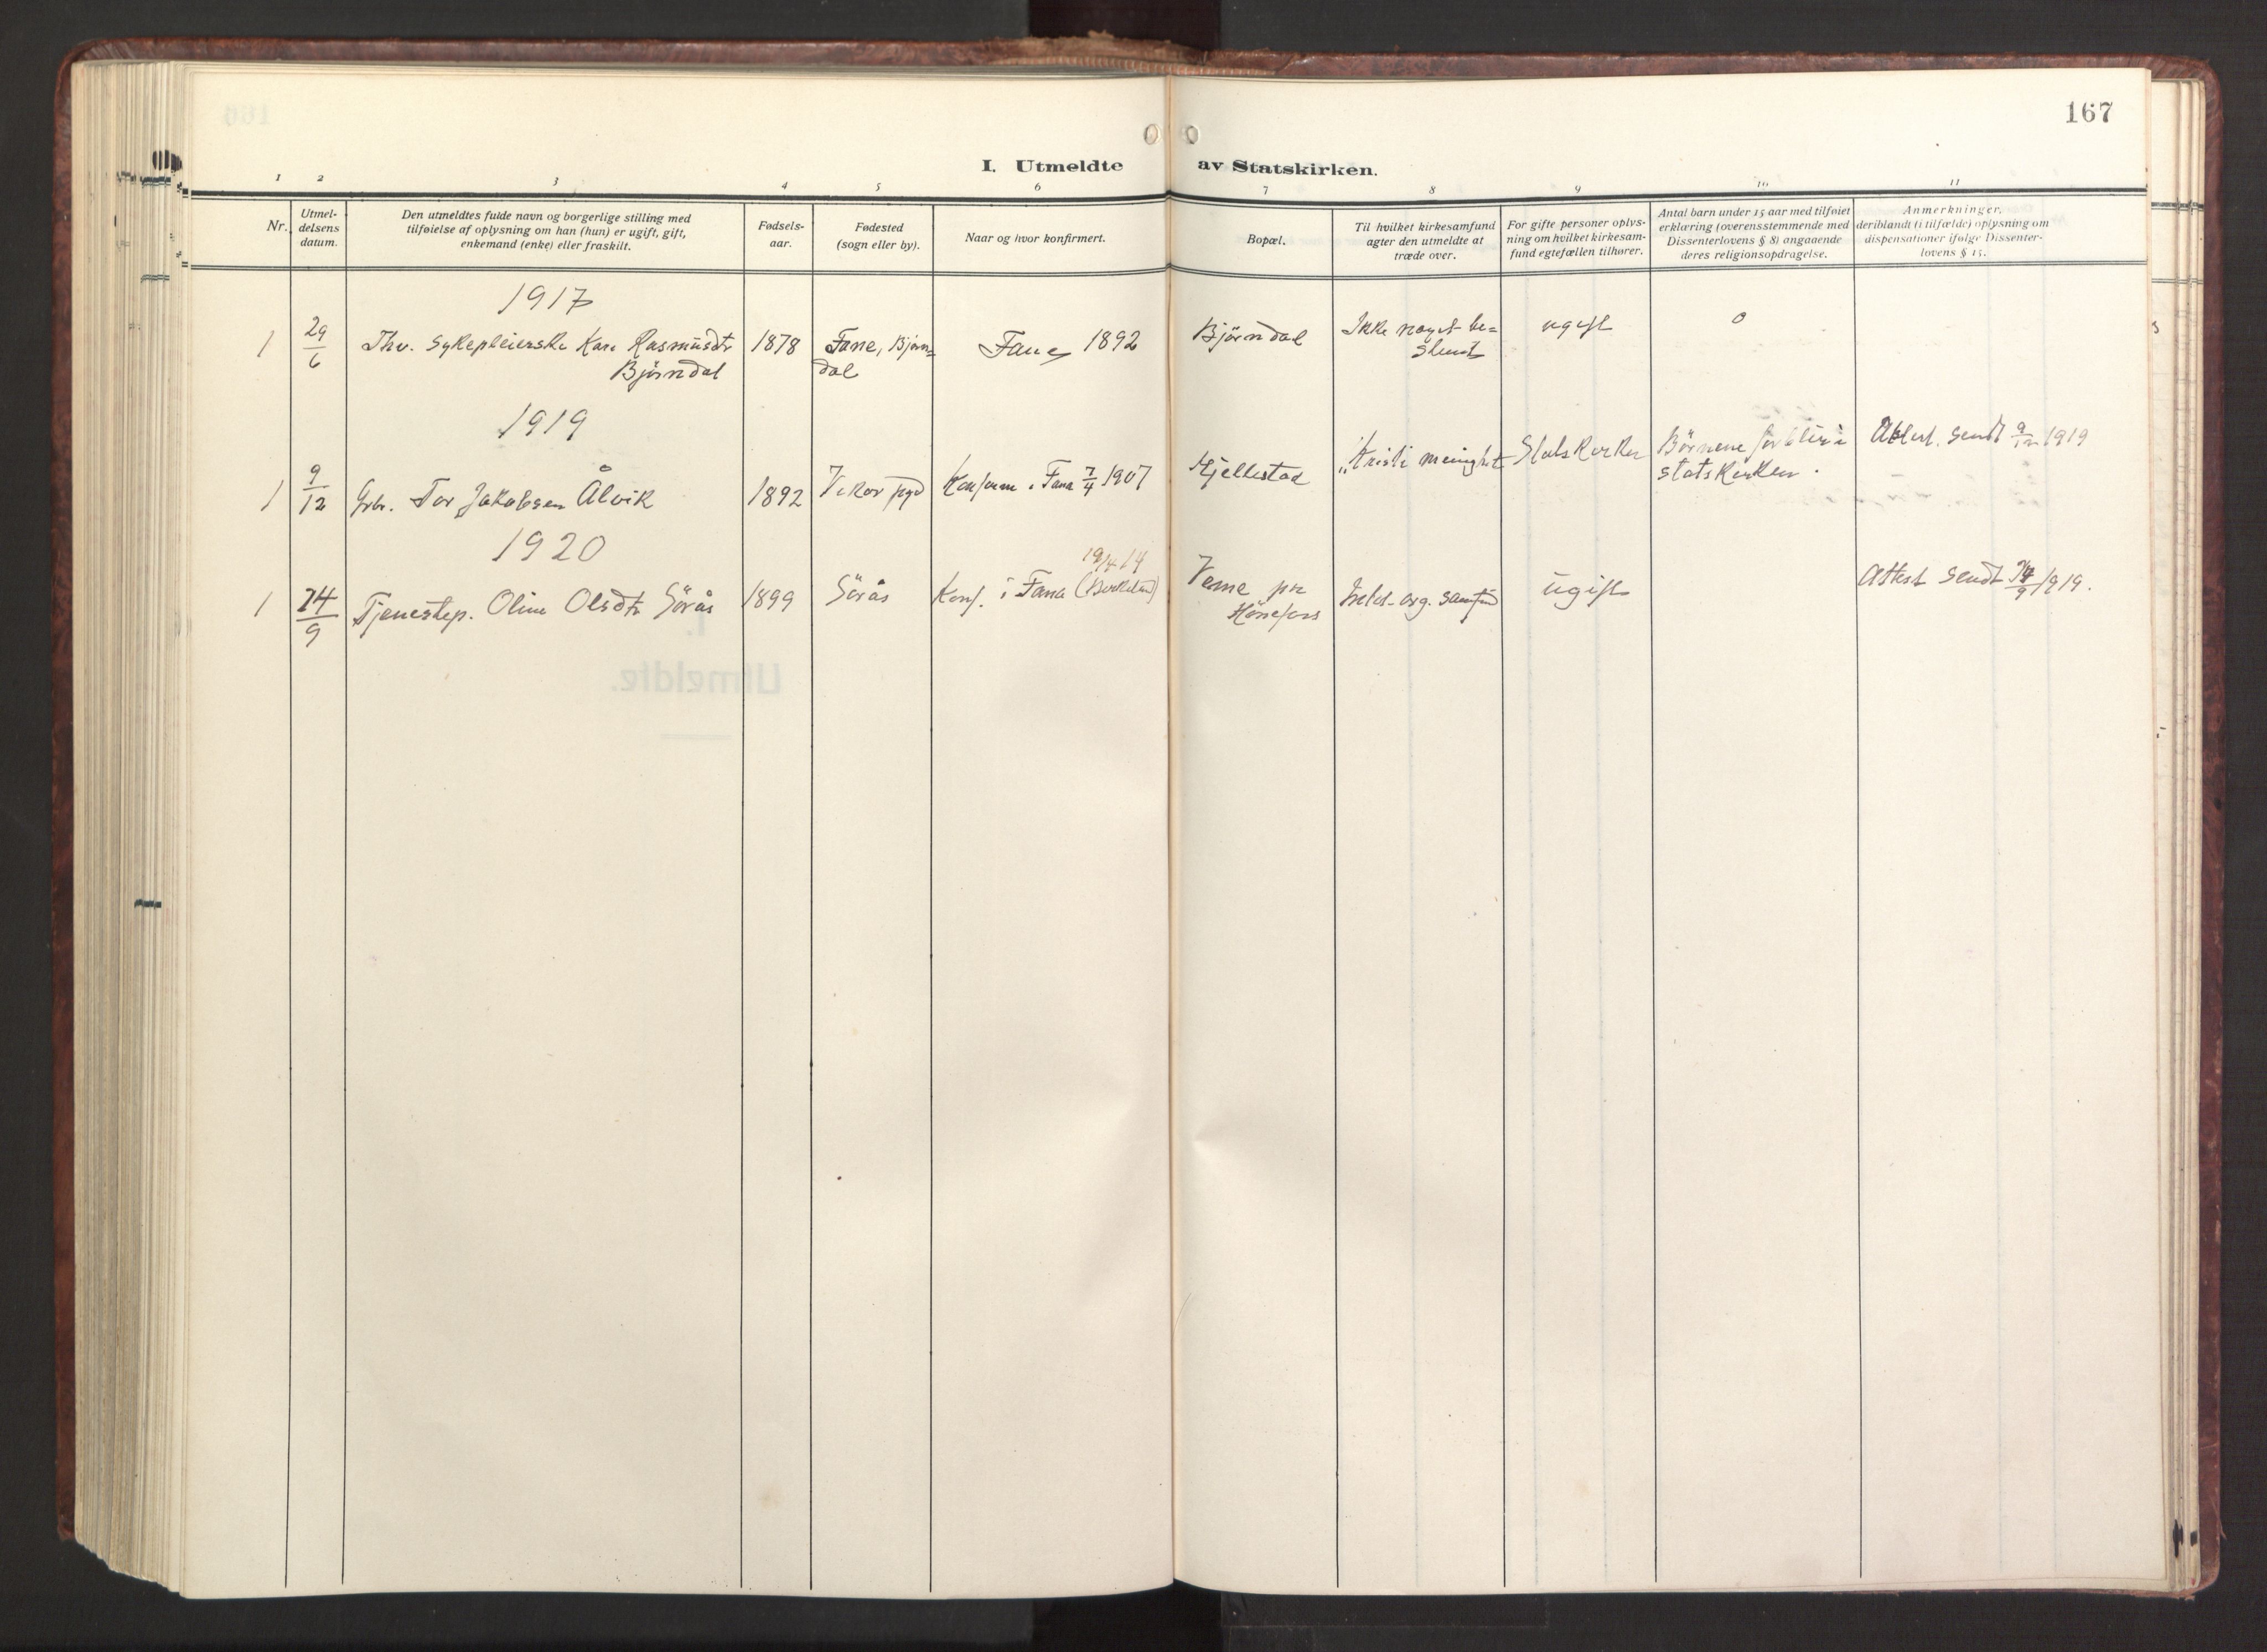 167
I. Utmeldte av Statskirken.
1 2 3 4 5 6 7 8 9 10 11
Nr.
Utmel-
delsens
datum.
Den utmeldtes fulde navn og borgerlige stilling med
tilføielse af oplysning om han (hun) er ugift, gift,
enkemand (enke) eller fraskilt.
Fødsels-
aar.
Fødested
(sogn eller by).
Naar og hvor konfirmert.
Bopæl.
Til hvilket kirkesamfund
agter den utmeldte at
træde over.
For gifte personer oplys-
ning om hvilket kirkesam-
fund egtefællen tilhører.
Antal barn under 15 aar med tilføiet
erklæring (overensstemmende med
Dissenterlovens § 8) angaaende
deres religionsopdragelse.
Anmerkninger,
deriblandt (i tilfælde) oplysning om
dispensationer ifølge Dissenter-
lovens § 15.
1917
1 29/6 Sykepleierske Kari Rasmusdtr
Bjørndal
1878
Fane, Bjørn=
dal
Fane 1892
Bjørndal
Ikke noget be=
stemt
ugift
0
1919
1 9/12 Gbr. Tor Jakobsen Ålvik
1892
Vikør pgd
Konfirm. i Fana 7/4 1907
Hjellestad
"Kristi menighet
Statskirken
Børnene forblir i
statskirken.
Attest. sendt 9/12 1919
1920
1 24/9 Tjenestep. Oline Olsdtr Sörås
1899
Sörås
19/4 14
Konf. i Fana (Birkeland)
Veme pr
Hönefoss
samfund
ugift
Attest sendt 24/9 1919.
Utmeldte.